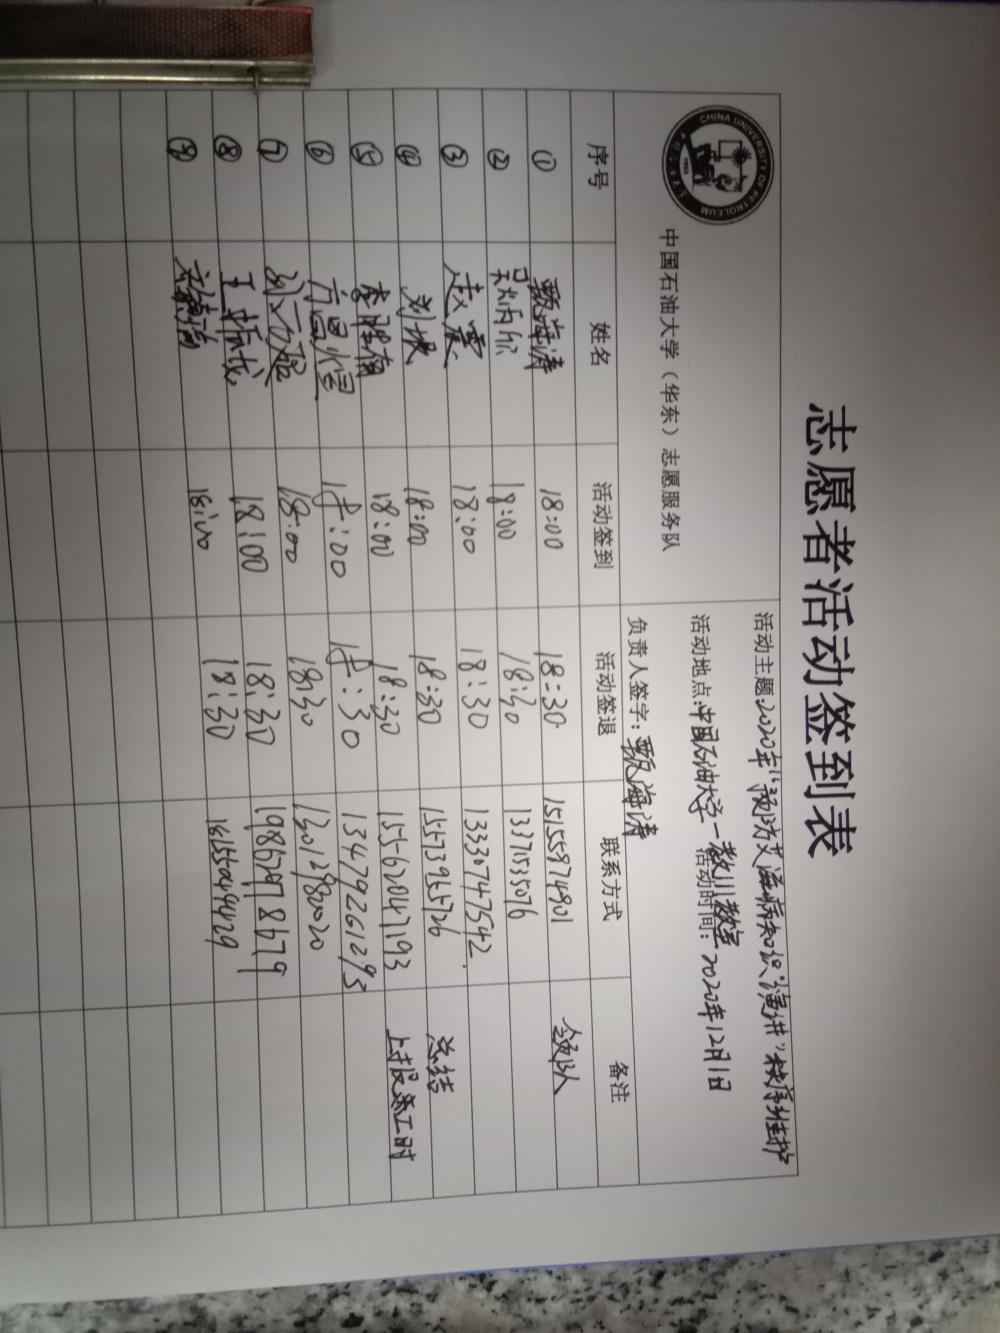 志愿者活动签到表
CHINA UNIVERSITY OF PETROLEUM
1953
中国石油大学（华东）志愿服务队
活动主题:2020年"预防艾滋病知识演讲"秩序维护
活动地点:中国石油大学一教川教室 活动时间: 2020年12月1日
负责人签字: 甄海涛
序号 姓名 活动签到 活动签退 联系方式 备注
① 甄海涛 18:00 18:30 15155874901 领队
② 吴炳 18:00 18:30 13371535076
③ 赵震 18:00 18:30 13330747542
④ 刘 18:00 18:30 15573955726 总结
⑤ 李胜楠 18:00 18:30 15562047193 上报系工时
⑥ 18:00 18:30 13479261295
⑦ 18:00 18:30 13012980020
⑧ 王 18:00 18:30 19862978679
⑨ 18:00 18:30